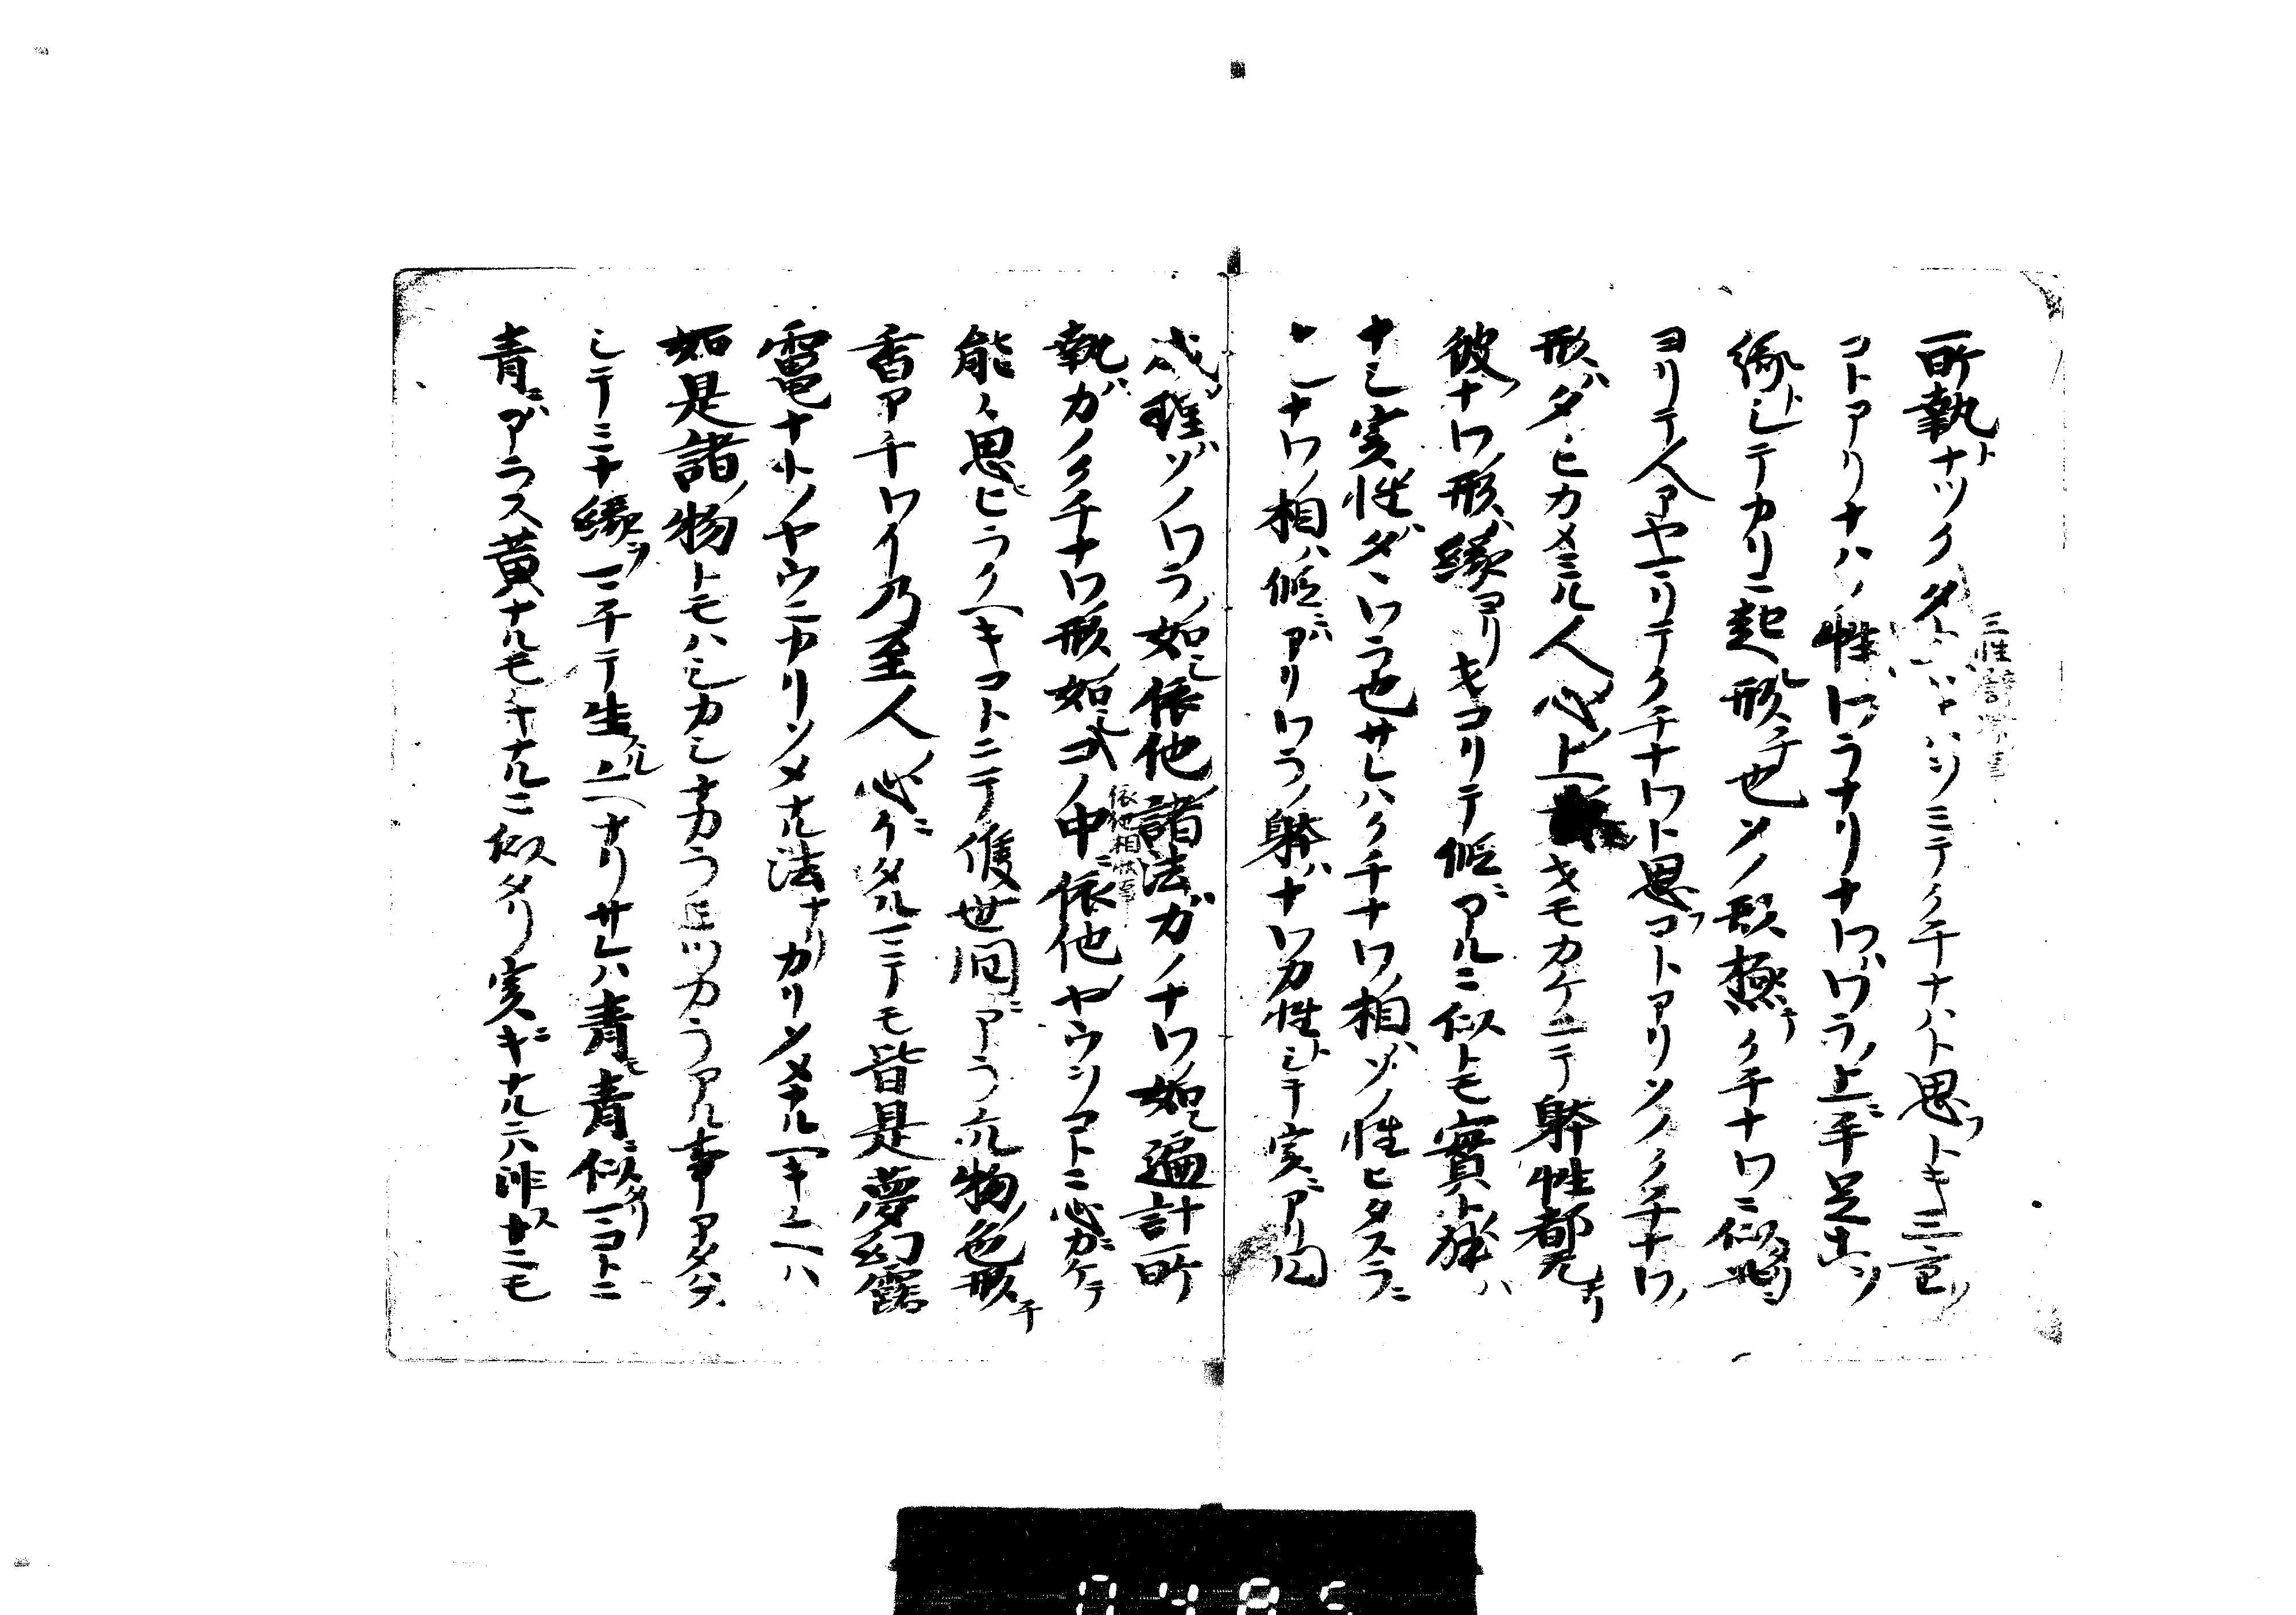 所執トナツクタトヘハナハヲミテクチナハト思フトキ三重ノ
コトアリナハノ性ワラナリナワハワラノ上ニ手足ナシ
縁トシテカリニ起シ形チ也ソノ形極テクチナワニ似タリ
ヨリテ人アヤマリテクチナワト思フコトアリソノクチナワノ
形ハタヽヒカメミル人ノ心ノ上ニ キモカケニテ躰性都无ナリ
彼ナワノ形ハ縁ヨリヲコリテ仮ニアルニ似トモ實ト
ナシ実性ハタヽワラ也サレハクチナワノ相ハソノ性ヒタスラニ
ナシナワノ相ハ仮ニアリワラノ躰ハナワカ性トシテ実ニアリ円
成ノ理ハソノワラノ如シ依他ノ諸法ハカノナワノ如シ遍計所
執ハカノクチナワノ形ノ如シ 中ニ依他ノヤウソコトニ心ニカケテ
能々思ヒヒラクヘキコトニテ 世間ニアラユル物ノ色形チ
香アチワイ乃至人ノ心ニイタルマテモ皆是夢幻露
電ナトノヤウニカリソメナル法ナリカリソメナルヘキユヘハ
如是諸ノ物トモハシカシナカラ ツカラアル事アタハス
シテミナ縁ヲマチテ生スルユヘナリサレハ青モ青ニ似タリマコトニ
青ニアラス黄ナルモキナルニ似タリ実ニキナルニハ非スナニモ
三性
依他相
0485